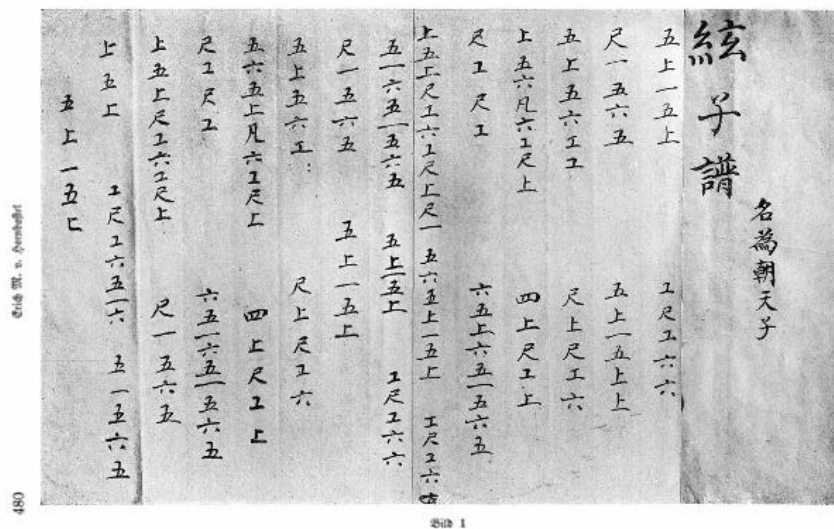 絃子譜
名為朝天子
五上一五上 工尺工六六
尺一五六五 五上一五上上
五上五六工工 尺上尺工六
上五六凡六工尺上 四上尺工上
尺工尺工 六五上六五一五六五
上五上尺工六工尺上尺一 五六五上一五上 工尺工六
五一六五一五六五 五上一五上 工尺工六六
尺一五六五 五上一五上
五上五六工 尺上尺工六
五六五上凡六工尺上 四上尺工上
尺工尺工 六五一六五一五六五
上五上尺工六工尺上 尺一五六五
上五上 工尺工六五一六 五一五六五
五上一五上
Erich M. v. Hornbostel
480
Bild 1